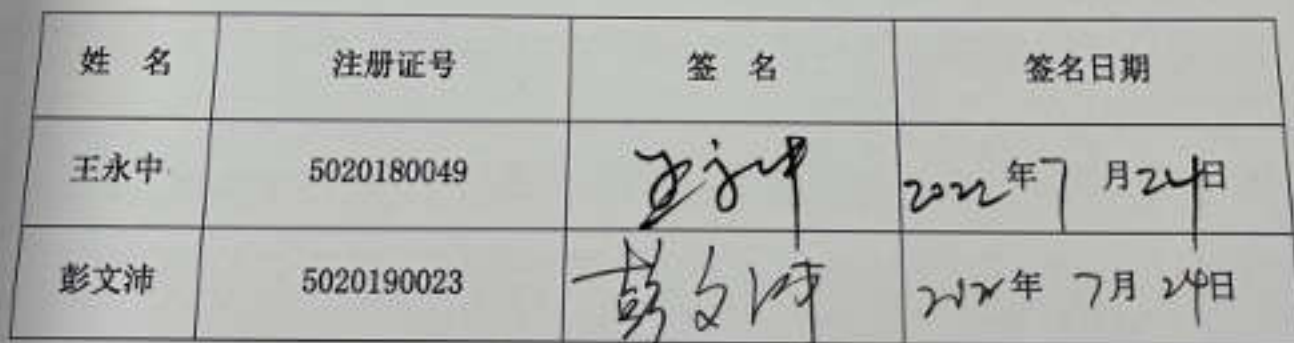 姓 名 注册证号 签 名 签名日期
王永中 5020180049 王永中 2022年7月24日
彭文沛 5020190023 彭文沛 2022年7月24日